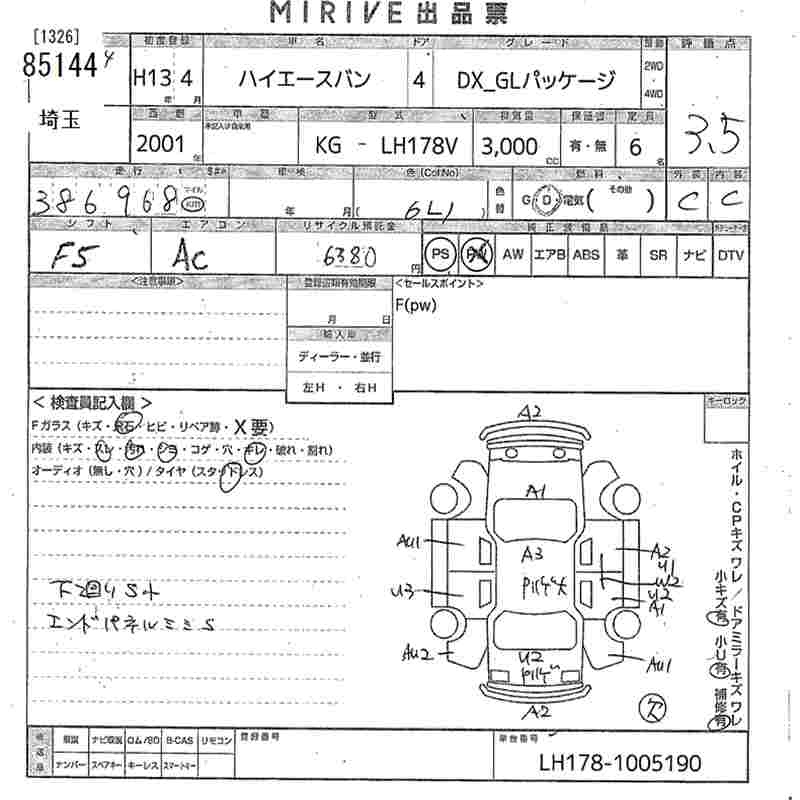 MIRIVE 出品票
[1326]
85144
埼玉
初度登録 車名 ドア グレード 駆動 評価点
H13 4 ハイエースバン 4 DX_GLパッケージ 2WD 4WD 3.5
年 月
西暦 車歴 型式 排気量 保証書 定員
2001 年 KG - LH178V 3,000 cc 有・無 6 名
走行 車検 色(Col No) 色替 燃料 外装 内装
386968 マイル km 年 月 ( 6L1 ) G D 電気 ( その他 ) C C
シフト エアコン リサイクル預託金 純正装備品
F5 AC 6380 円 PS PW AW エアB ABS 革 SR ナビ DTV
<注意事項> 登録書類有効期限 <セールスポイント>
月 日 F(pw)
輸入車
ディーラー・並行
左H ・ 右H
< 検査員記入欄 > キーロック
Fガラス (キズ・飛石・ヒビ・リペア跡・X要)
内装 (キズ・スレ・汚れ・シミ・コゲ・穴・キレ・破れ・割れ)
オーディオ (無し・穴) / タイヤ (スタッドレス)
A2
A1
AU1 A3 A2
U1
U3 W2
U2
A1
下回りSホ
エンドパネルミミS
AU2 U2 AU1
A2 欠
ホイル・CPキズ ワレ / ドアミラーキズ ワレ
小キズ有 小U有 補修有
後送品 取説 ナビ取説 ROM/SD B-CAS リモコン 登録番号 車台番号
ナンバー スペアキー キーレス スマートキー LH178-1005190